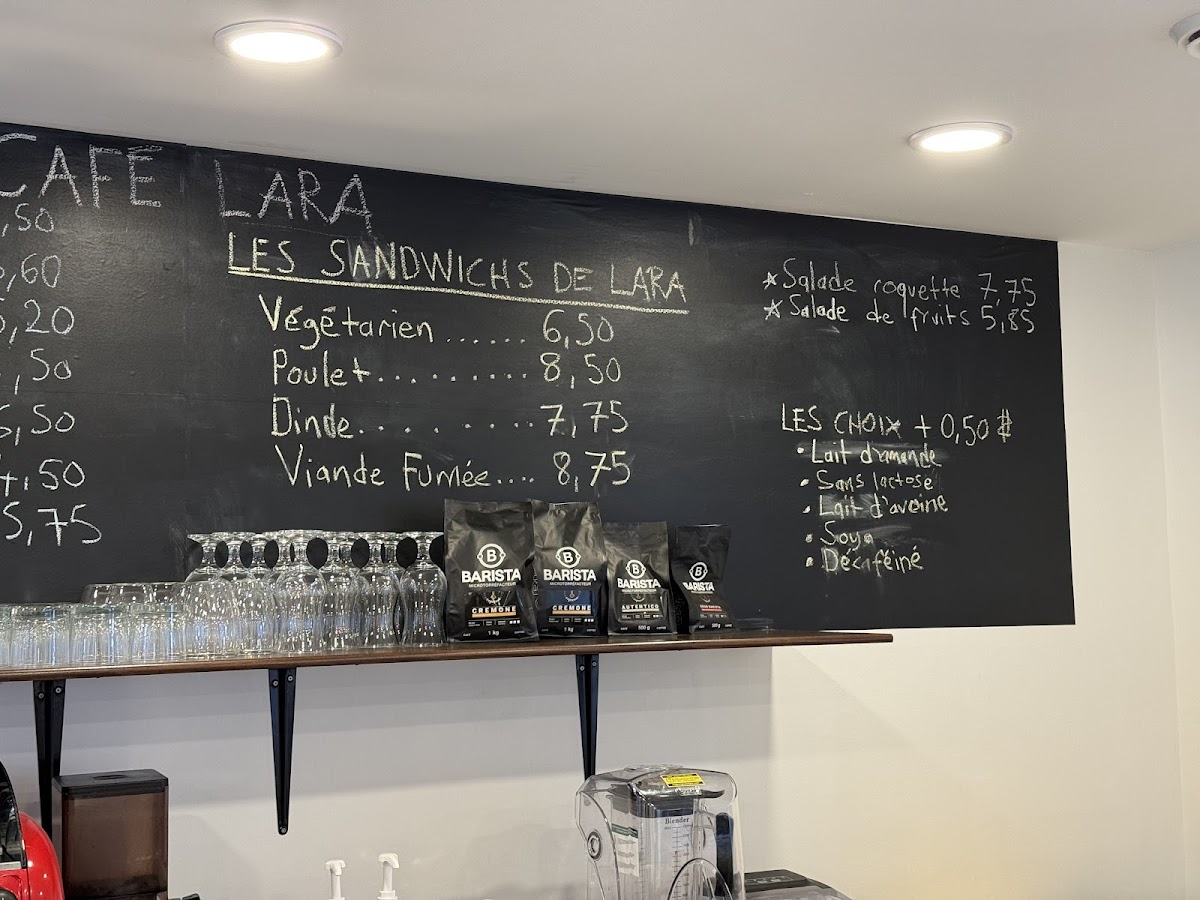 CAFÉ LARA
,50
,60
,20
,50
,50
,50
5,75
LES SANDWICHS DE LARA
Végétarien ...... 6,50
Poulet.......... 8,50
Dinde.......... 7,75
Viande Fumée.... 8,75
* Salade roquette 7,75
* Salade de fruits 5,85
LES CHOIX + 0,50 $
• Lait d'amande
• Sans lactose
• Lait d'avoine
• Soya
• Décaféiné
B
BARISTA
MICROTORRÉFACTEUR
CREMONE
1 kg
B
BARISTA
MICROTORRÉFACTEUR
CREMONE
1 kg
B
BARISTA
AUTENTICO
500 g
B
BARISTA
Blender